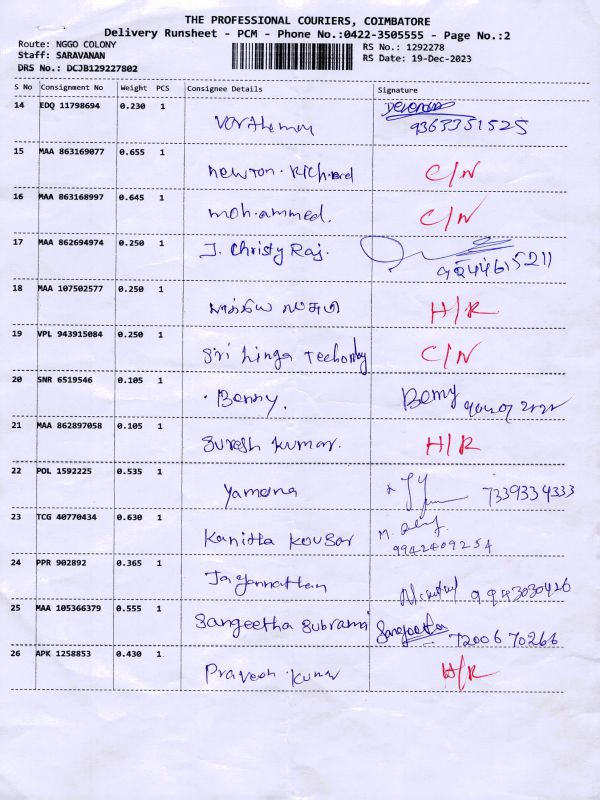 THE PROFESSIONAL COURIERS, COIMBATORE
Delivery Runsheet - PCM - Phone No.:0422-3505555 - Page No.:2
Route: NGGO COLONY RS No.: 1292278
Staff: SARAVANAN RS Date: 19-Dec-2023
DRS No.: DCJB129227802
S No Consignment No Weight PCS Consignee Details Signature
14 EDQ 11798694 0.230 1
9363351525
15 MAA 863169077 0.655 1
newton. Richard C/N
16 MAA 863168997 0.645 1
mohammed. C/N
17 MAA 862694974 0.250 1
J. Christy Raj.
9244615211
18 MAA 107502577 0.250 1
H/R
19 VPL 943915084 0.250 1
Sri Linga C/N
20 SNR 6519546 0.105 1
Benny. Benny
21 MAA 862897058 0.105 1
Suresh Kumar. H/R
22 POL 1592225 0.535 1
Yamuna 7339334333
23 TCG 40770434 0.630 1
Kanitta Kousar M.
9942409254
24 PPR 902892 0.365 1
Jagannathan 9943030426
25 MAA 105366379 0.555 1
Sangeetha Subramani Sangeetha
7200670266
26 APK 1258853 0.430 1
Praveen Kumar H/R